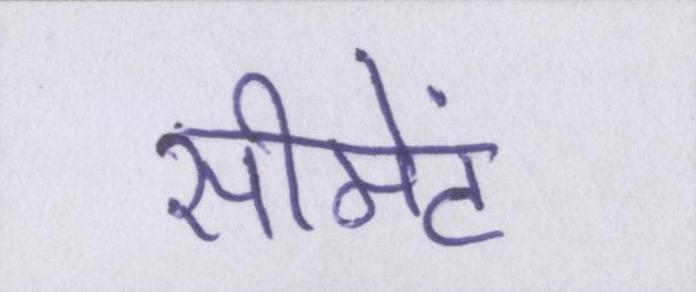 सीमेंट